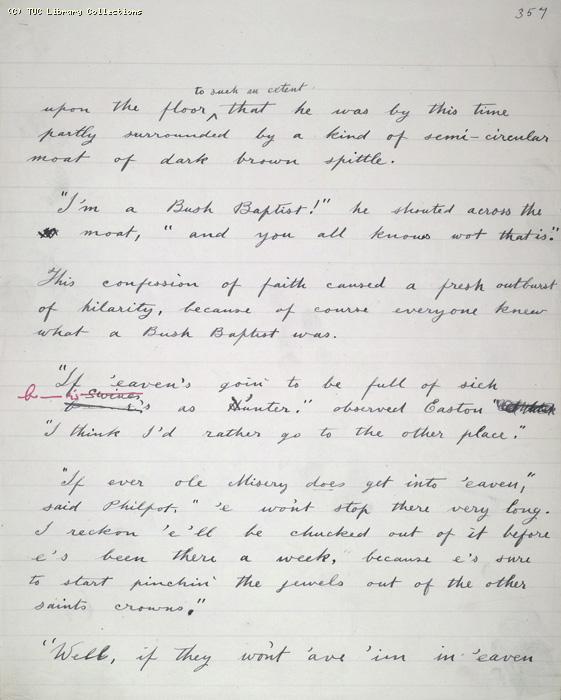 (C) TUC Library Collections
357
to such an extent
upon the floor ^ that he was by this time
partly surrounded by a kind of semi-circular
moat of dark brown spittle.
"I'm a Bush Baptist!" he shouted across the
moat, "and you all knows wot that is."
This confession of faith caused a fresh outburst
of hilarity, because of course everyone knew
what a Bush Baptist was.
"If 'eaven's goin' to be full of sich
b— swines
as 'unter." observed Easton
"I think I'd rather go to the other place."
"If ever ole Misery does get into 'eaven,"
said Philpot. "'e won't stop there very long.
I reckon 'e'll be chucked out of it before
e's been there a week, because e's sure
to start pinchin' the jewels out of the other
saints crowns."
"Well, if they won't 'ave 'im in 'eaven